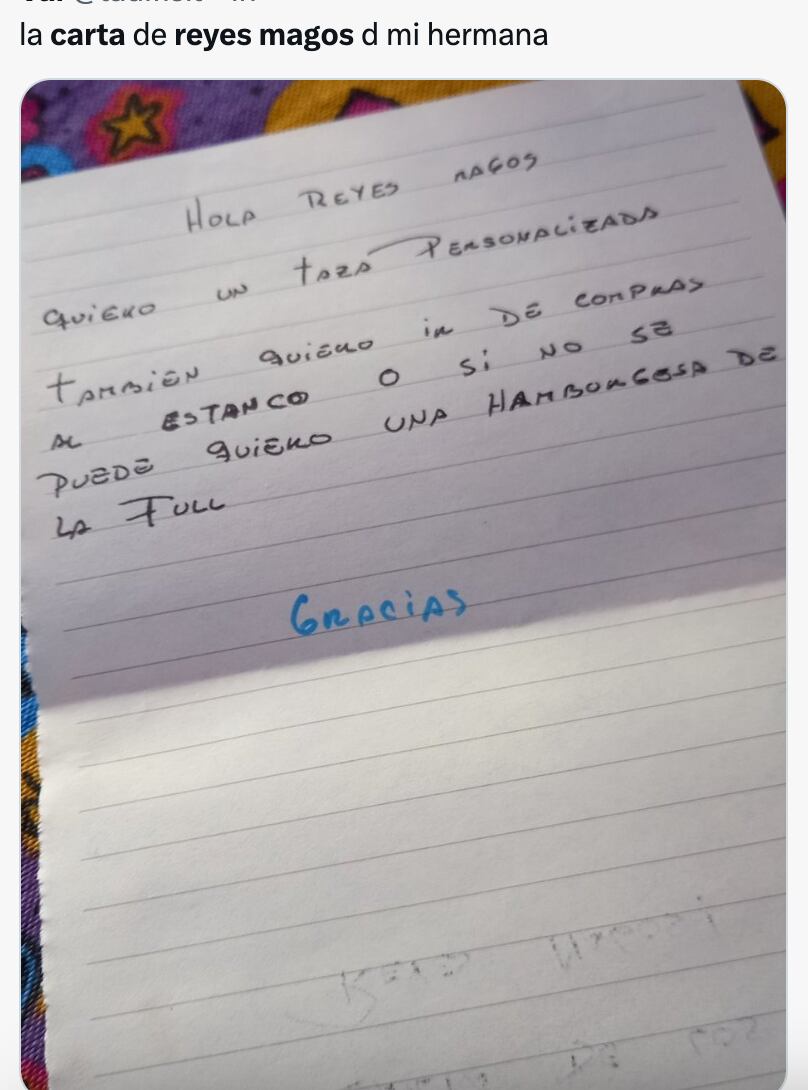 la carta de reyes magos d mi hermana
HOLA REYES MAGOS
QUIERO UN TAZA PERSONALIZADA
TAMBIEN QUIERO ir DE COMPRAS
AL ESTANCO O Si NO SE
PUEDE QUIERO UNA HAMBURGESA DE
LA FULL
GRACiAS